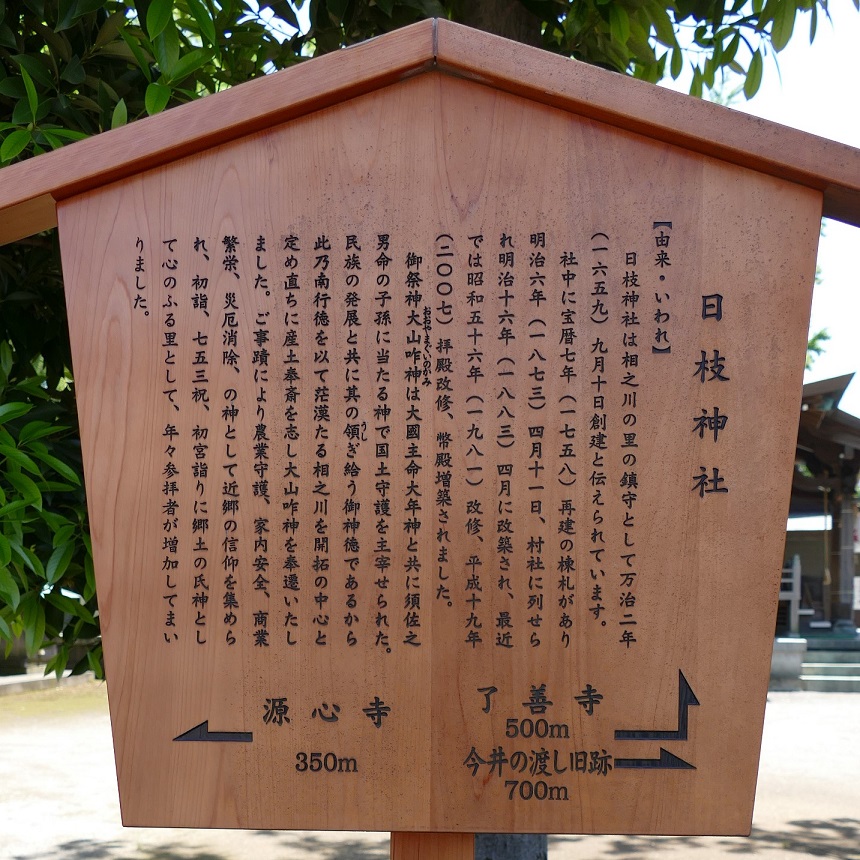 日枝神社
【由来・いわれ】
日枝神社は相之川の里の鎮守として万治二年
（一六五九）九月十日創建と伝えられています。
社中に宝暦七年（一七五八）再建の棟札があり
明治六年（一八七三）四月十一日、村社に列せら
れ明治十六年（一八八三）四月に改築され、最近
では昭和五十六年（一九八一）改修、平成十九年
（二〇〇七）拝殿改修、幣殿増築されました。
御祭神大山咋神は大國主命大年神と共に須佐之
おおやまぐいのかみ
男命の子孫に当たる神で国土守護を主宰せられた。
民族の発展と共に其の領ぎ給う御神徳であるから
うし
此乃南行徳を以て茫漠たる相之川を開拓の中心と
定め直ちに産土奉斎を志し大山咋神を奉遷いたし
ました。ご事蹟により農業守護、家内安全、商業
繁栄、災厄消除、の神として近郷の信仰を集めら
れ、初詣、七五三祝、初宮詣りに郷土の氏神とし
て心のふる里として、年々参拝者が増加してまい
りました。
源心寺
350m
了善寺
500m
今井の渡し旧跡
700m